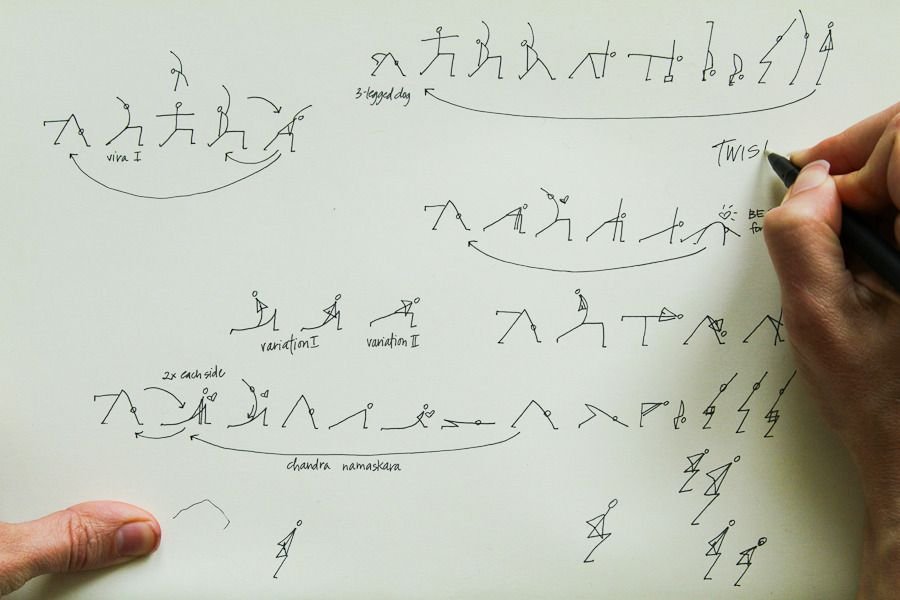 3-legged dog
vira I
TWIS
BE
for
variation I
variation II
2x each side
chandra namaskara